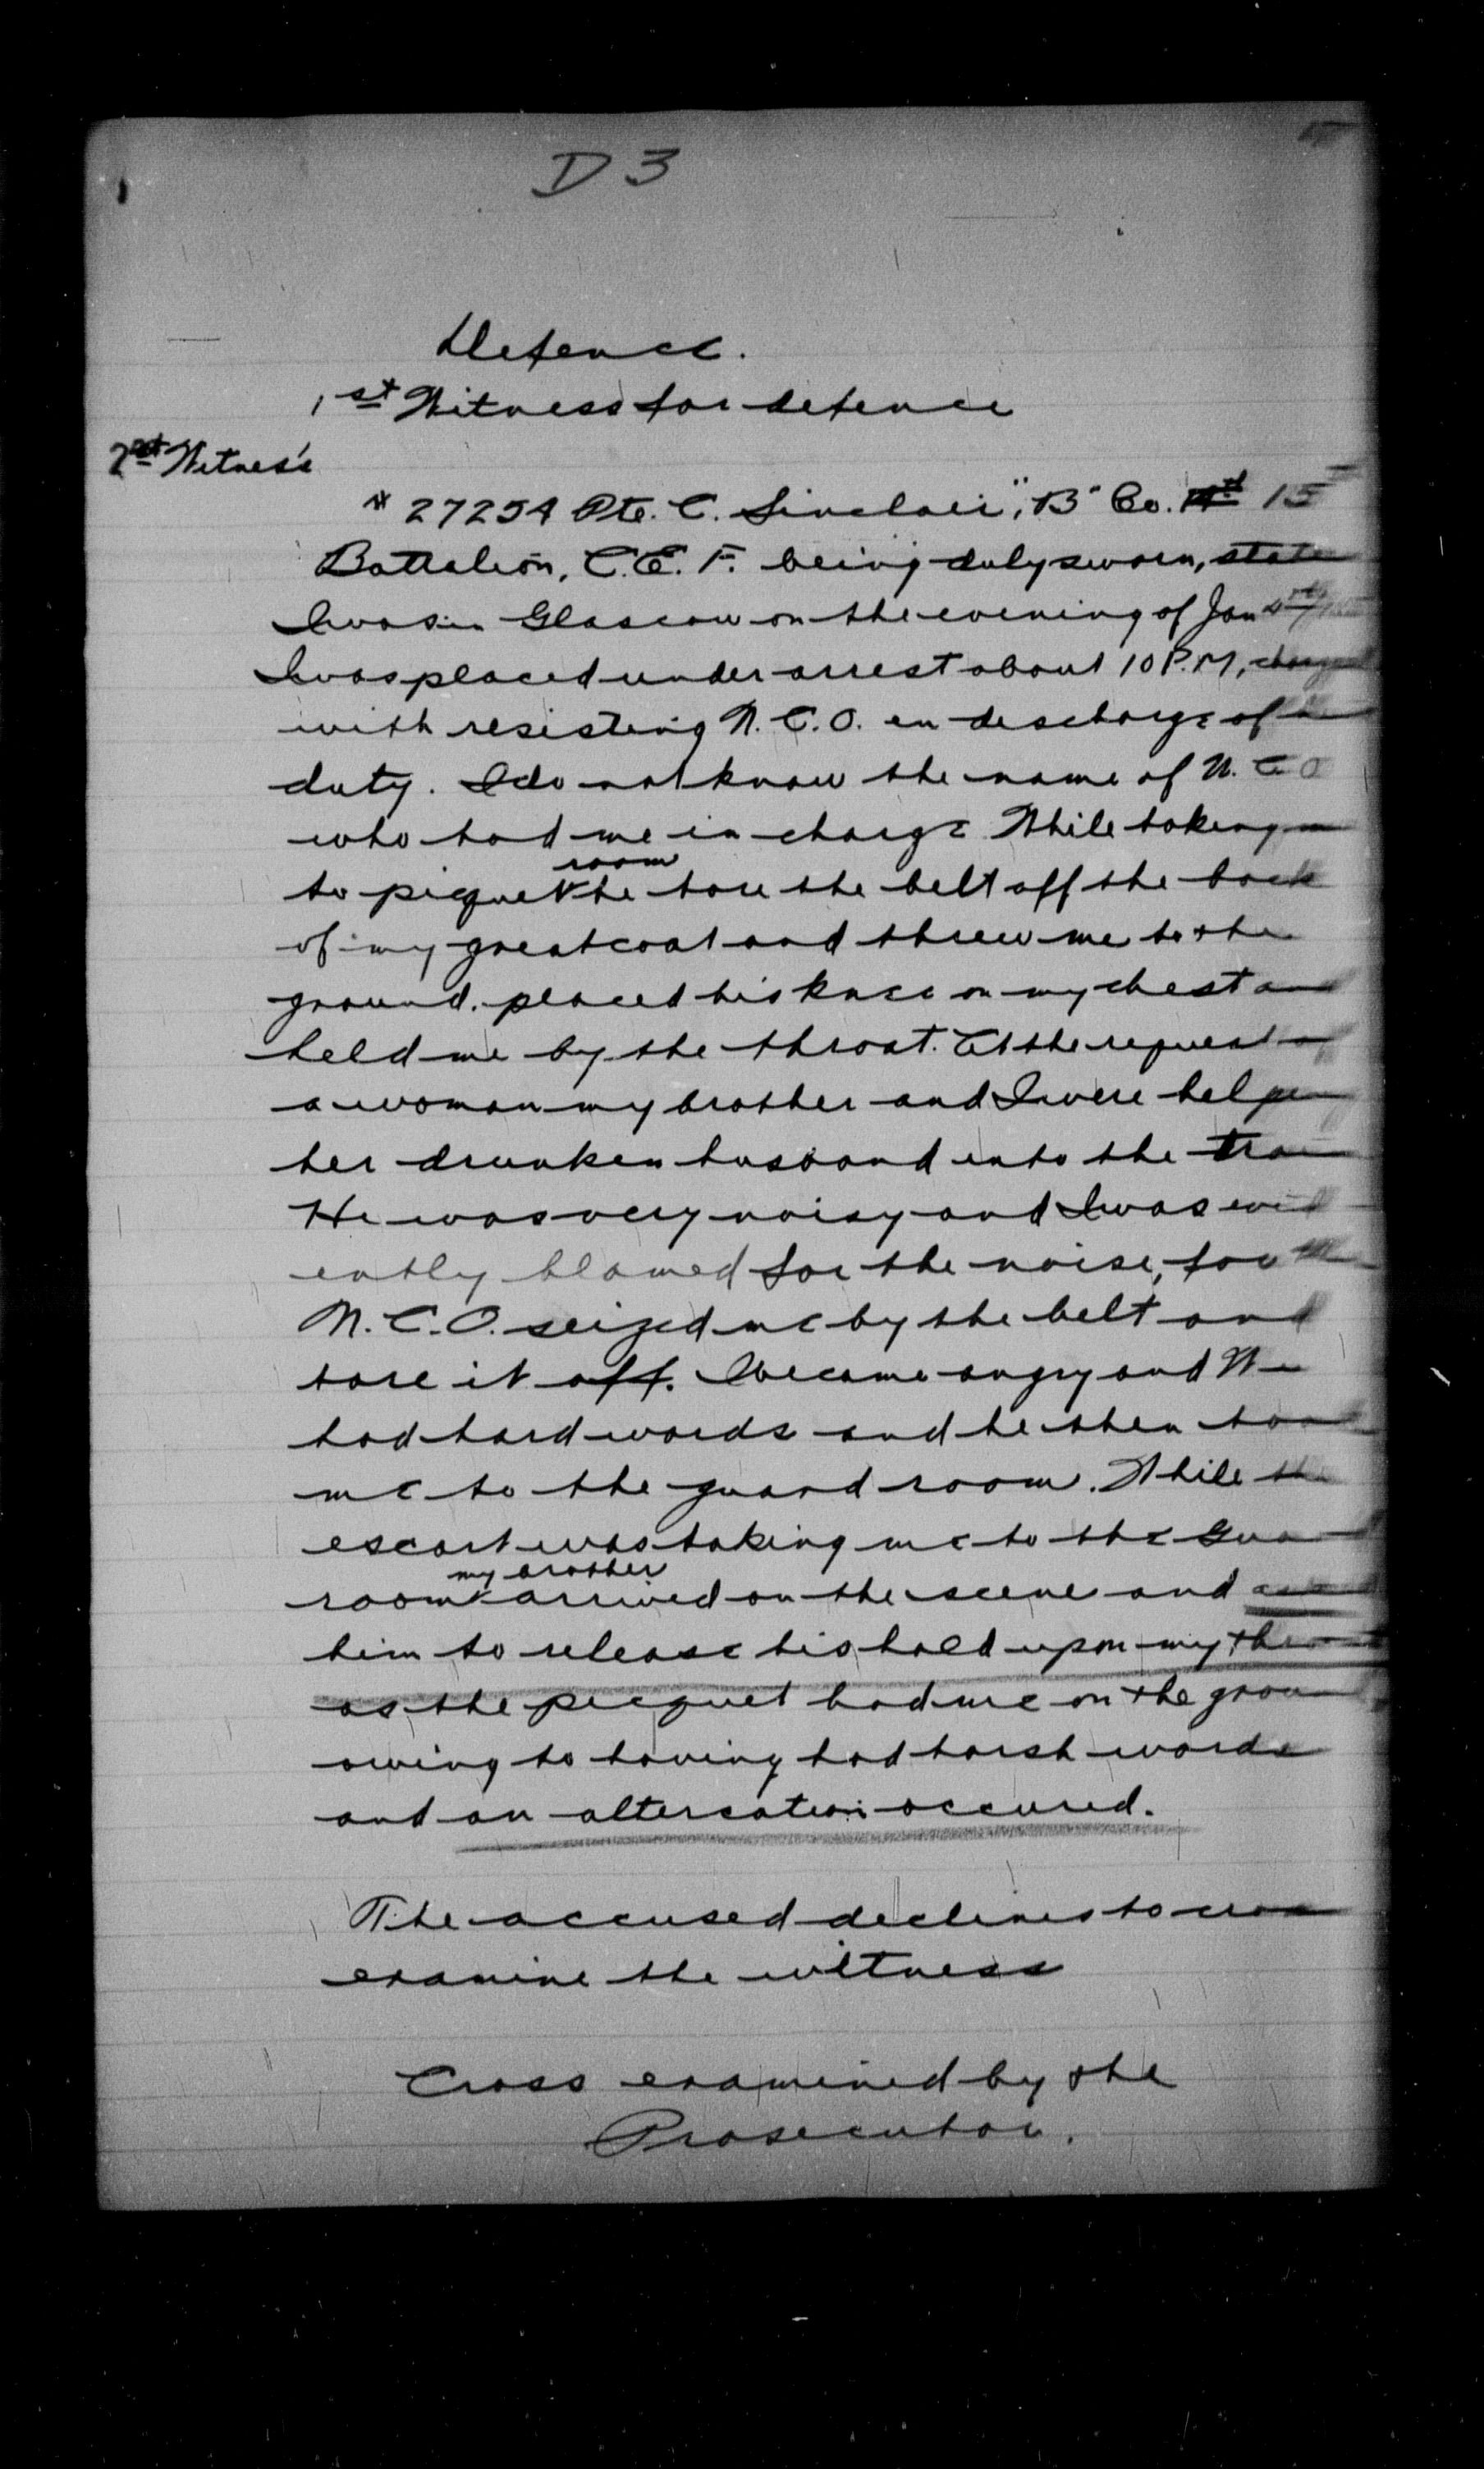 D 3
Defence.
1st Witness for defence
2nd Witness
# 27254 Pte. C. Sinclair, "B" Co. 15
Battalion, C.E.F. being duly sworn, state
I was in Glascow on the evening of Jan
I was placed under arrest about 10 P.M, charged
with resisting N.C.O. in descharge of
duty. I do not know the name of N.C.O
who had me in charge While taking me
to picquet room he tore the belt off the back
of my great coat and threw me to the
ground. placed his knee on my chest and
held me by the throat. At the request of
a woman my brother and I were helping
her drunken husband into the train
He was very noisy and I was evid
ently blamed for the noise, for the
N.C.O. seized me by the belt and
tore it off. I became angry and We
had hard words and he then took
me to the guard room. While the
escort was taking me to the Guard
room my brother arrived on the scene and asked
him to release his hold upon my throat
as the picquet had me on the ground
owing to having had harsh words
and an altercation occured.
The accused declines to cross
examine the witness
Cross examined by the
Prosecutor.